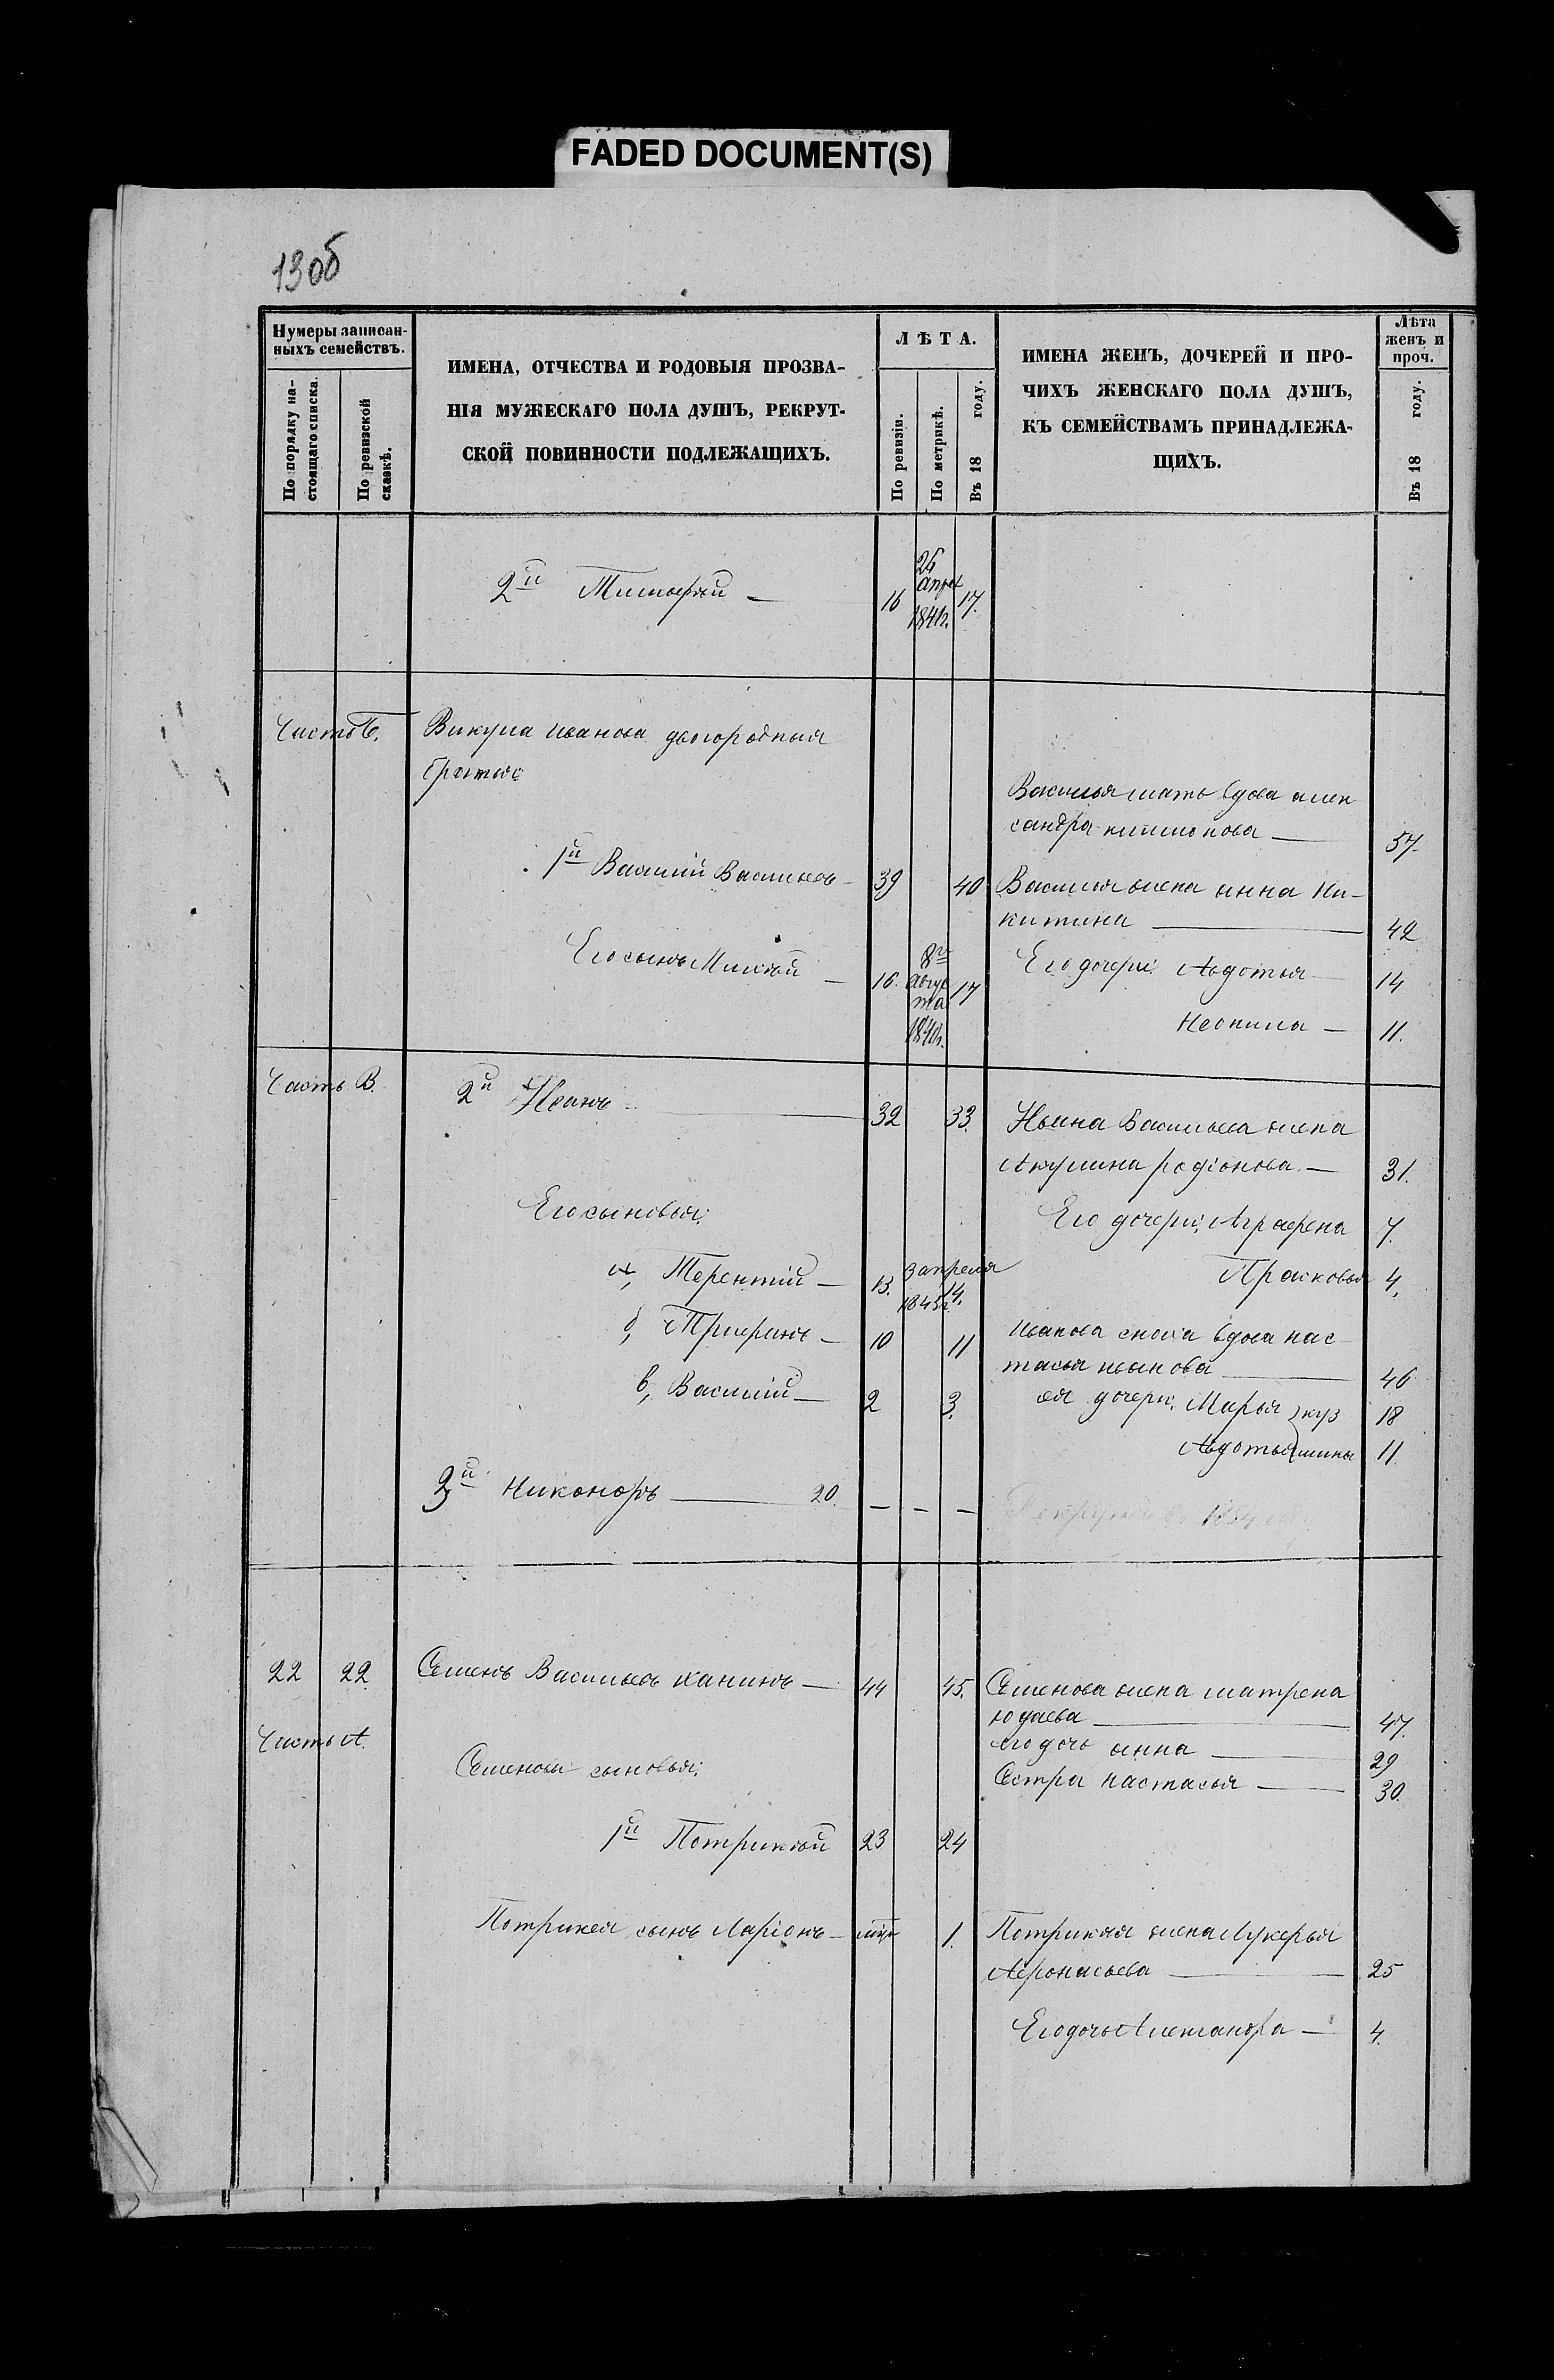 FADED DOCUMENT(S)
130б
Нумеры записан-
ныхъ семействъ.
По порядку на-
стоящаго списка.
По ревизской
сказкѣ.
ИМЕНА, ОТЧЕСТВА И РОДОВЫЯ ПРОЗВА-
НІЯ МУЖЕСКАГО ПОЛА ДУШЪ, РЕКРУТ-
СКОЙ ПОВИННОСТИ ПОДЛЕЖАЩИХЪ.
ЛѢТА.
По ревизіи.
По метрикѣ.
Въ 18 году.
ИМЕНА ЖЕНЪ, ДОЧЕРЕЙ И ПРО-
ЧИХЪ ЖЕНСКАГО ПОЛА ДУШЪ,
КЪ СЕМЕЙСТВАМЪ ПРИНАДЛЕЖА-
ЩИХЪ.
Лѣта
женъ и
проч.
Въ 18 году.
2й Тимофей — 16 апрел 17.
Часть Б. Викула Иванова двоюродныя
братья
Василья мать вдова Алек
сандра — 57.
1й Василий Васильевъ — 39 40 Василья жена Анна Ни-
китина — 42
Его сынъ — 16. 8го авгус та 1840г. 17 Его дочери: Авдотья — 14
Неонила — 11.
Часть В. 2й Иванъ — 32 33. Ивана Васильева жена
Акулина родіонова — 31.
Его сыновья: Его дочери: Аграфена 7.
а, Терентій — 13. 3 апреля 1843г. 14. Прасковья 4.
б, Трифонъ — 10 11 Иванова сноха вдова нас
тасья иванова — 46
в, Василий — 2 3. ея дочери: Марья куз 18
Авдотья мины 11
3й Никоноръ — 20. — — — 1854
22 22 Семенъ Васильевъ Канинъ — 44 45. Семенова жена матрена
юдаева — 47.
Часть А. его дочь анна — 29
Семеновы сыновья: Сестра настасья — 30.
1й Потрикѣй 23 24
Потрикея сынъ Ларіонъ — 1. Потрикея жена Лукерья
Афонасьева — 25
Его дочь Александра — 4.